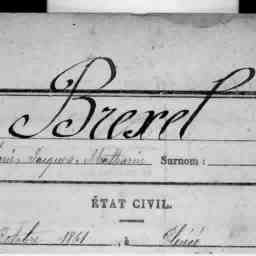 Brexel
Jacques Mathurin Surnom :
ÉTAT CIVIL.
Octobre 1861 à